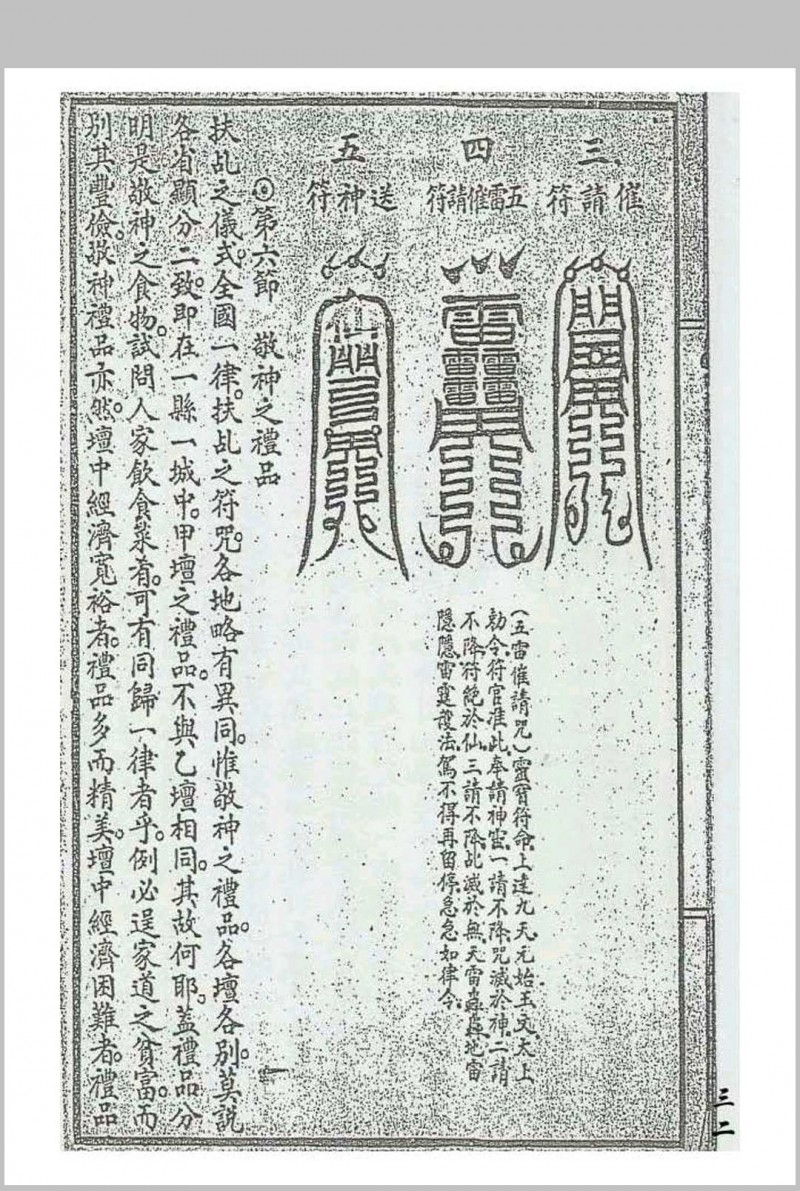 三、
催請符
四
五雷催請符
五
送神符
(五雷催請咒)靈寶符命、上達九天、元始玉文、太上
勅令、符官准此、奉請神靈、一請不降、咒滅於神、二請
不降、符絕於仙、三請不降、乩滅於無、天雷轟轟、地雷
隱隱、雷霆護法、駕不得再留停、急急如律令、
⊙第六節 敬神之禮品
扶乩之儀式。全國一律。扶乩之符咒。各地略有異同。惟敬神之禮品。各壇各別。莫說
各省顯分二致。即在一縣一城中。甲壇之禮品。不與乙壇相同。其故何耶。蓋禮品分
明是敬神之食物。試問人家飲食菜肴。可有同歸一律者乎。例必逞家道之貧富。而
別其豐儉。敬神禮品亦然。壇中經濟寬裕者。禮品多而精美。壇中經濟困難者。禮品
三二